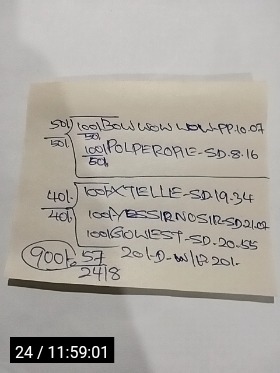 50/. 100/BOW WOW WOW-PP.10.07
50/. 50/.
100/POLPEROPIE-SD.8.16
50/.
40/. 100/XTIELLE-SD.19.34
40/. 100/YESSIRNOSIR-SD.21.07
100/GOWEST-SD-20-55
900/. 57 20/-D-W/P 20/.
2418
24 / 11:59:01